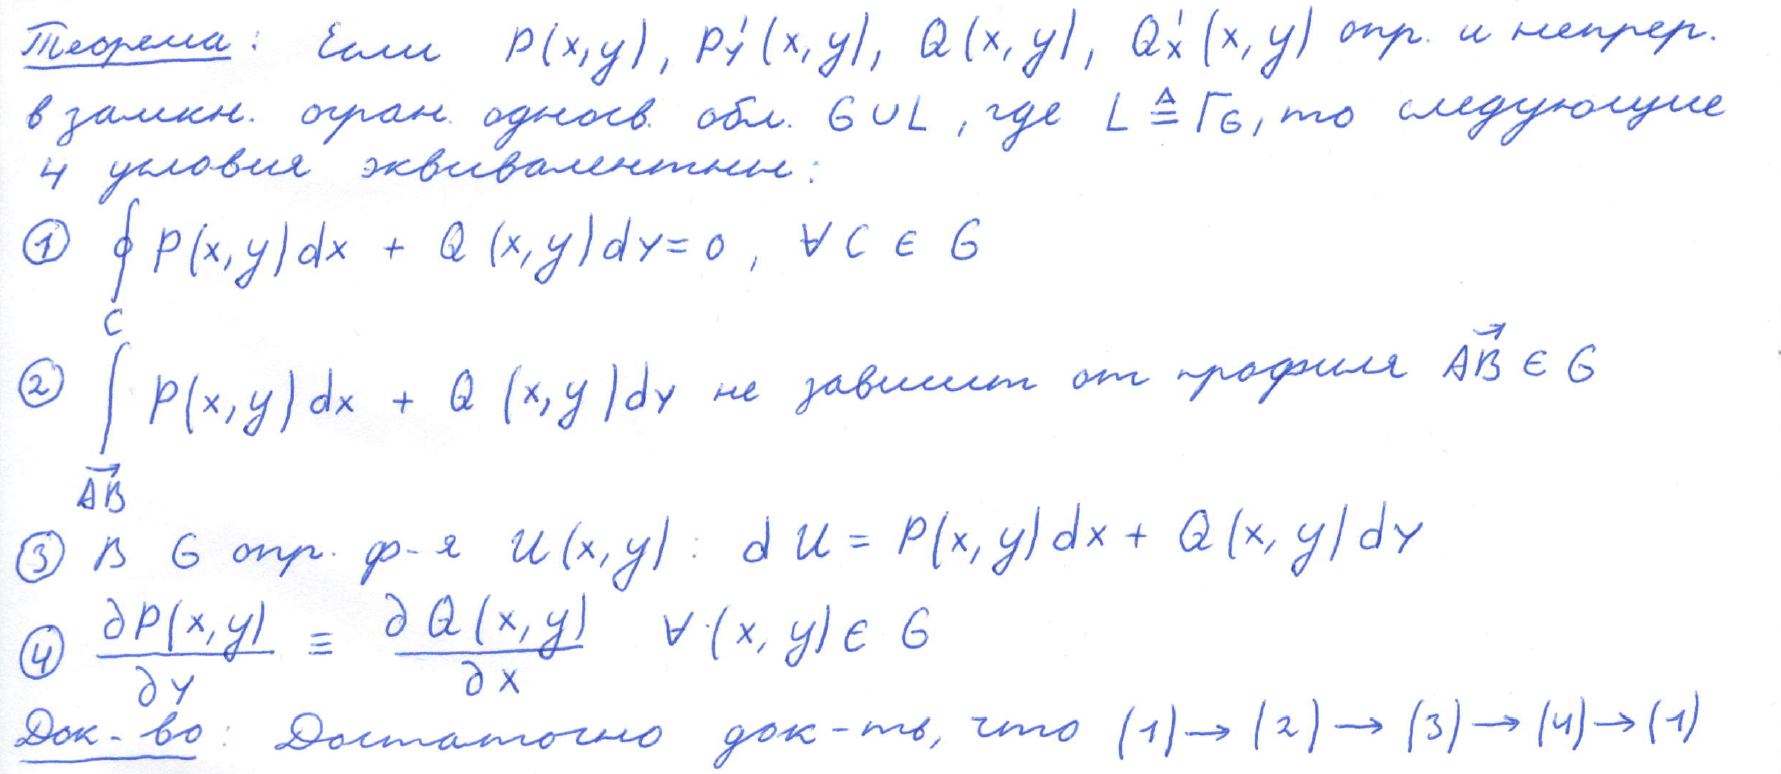 Теорема: Если P(x,y), P'y(x,y), Q(x,y), Q'x(x,y) опр. и непрер.
в замкн. огран. односв. обл. G∪L, где L ≜ Γ_G, то следующие
4 условия эквивалентны:
① ∮_C P(x,y)dx + Q(x,y)dy=0, ∀ C ∈ G
② ∫_{\vec{AB}} P(x,y)dx + Q(x,y)dy не зависит от профиля \vec{AB} ∈ G
③ В G опр. ф-я U(x,y): dU = P(x,y)dx + Q(x,y)dy
④ ∂P(x,y)/∂y ≡ ∂Q(x,y)/∂x ∀(x,y)∈ G
Док-во: Достаточно док-ть, что (1)→(2)→(3)→(4)→(1)